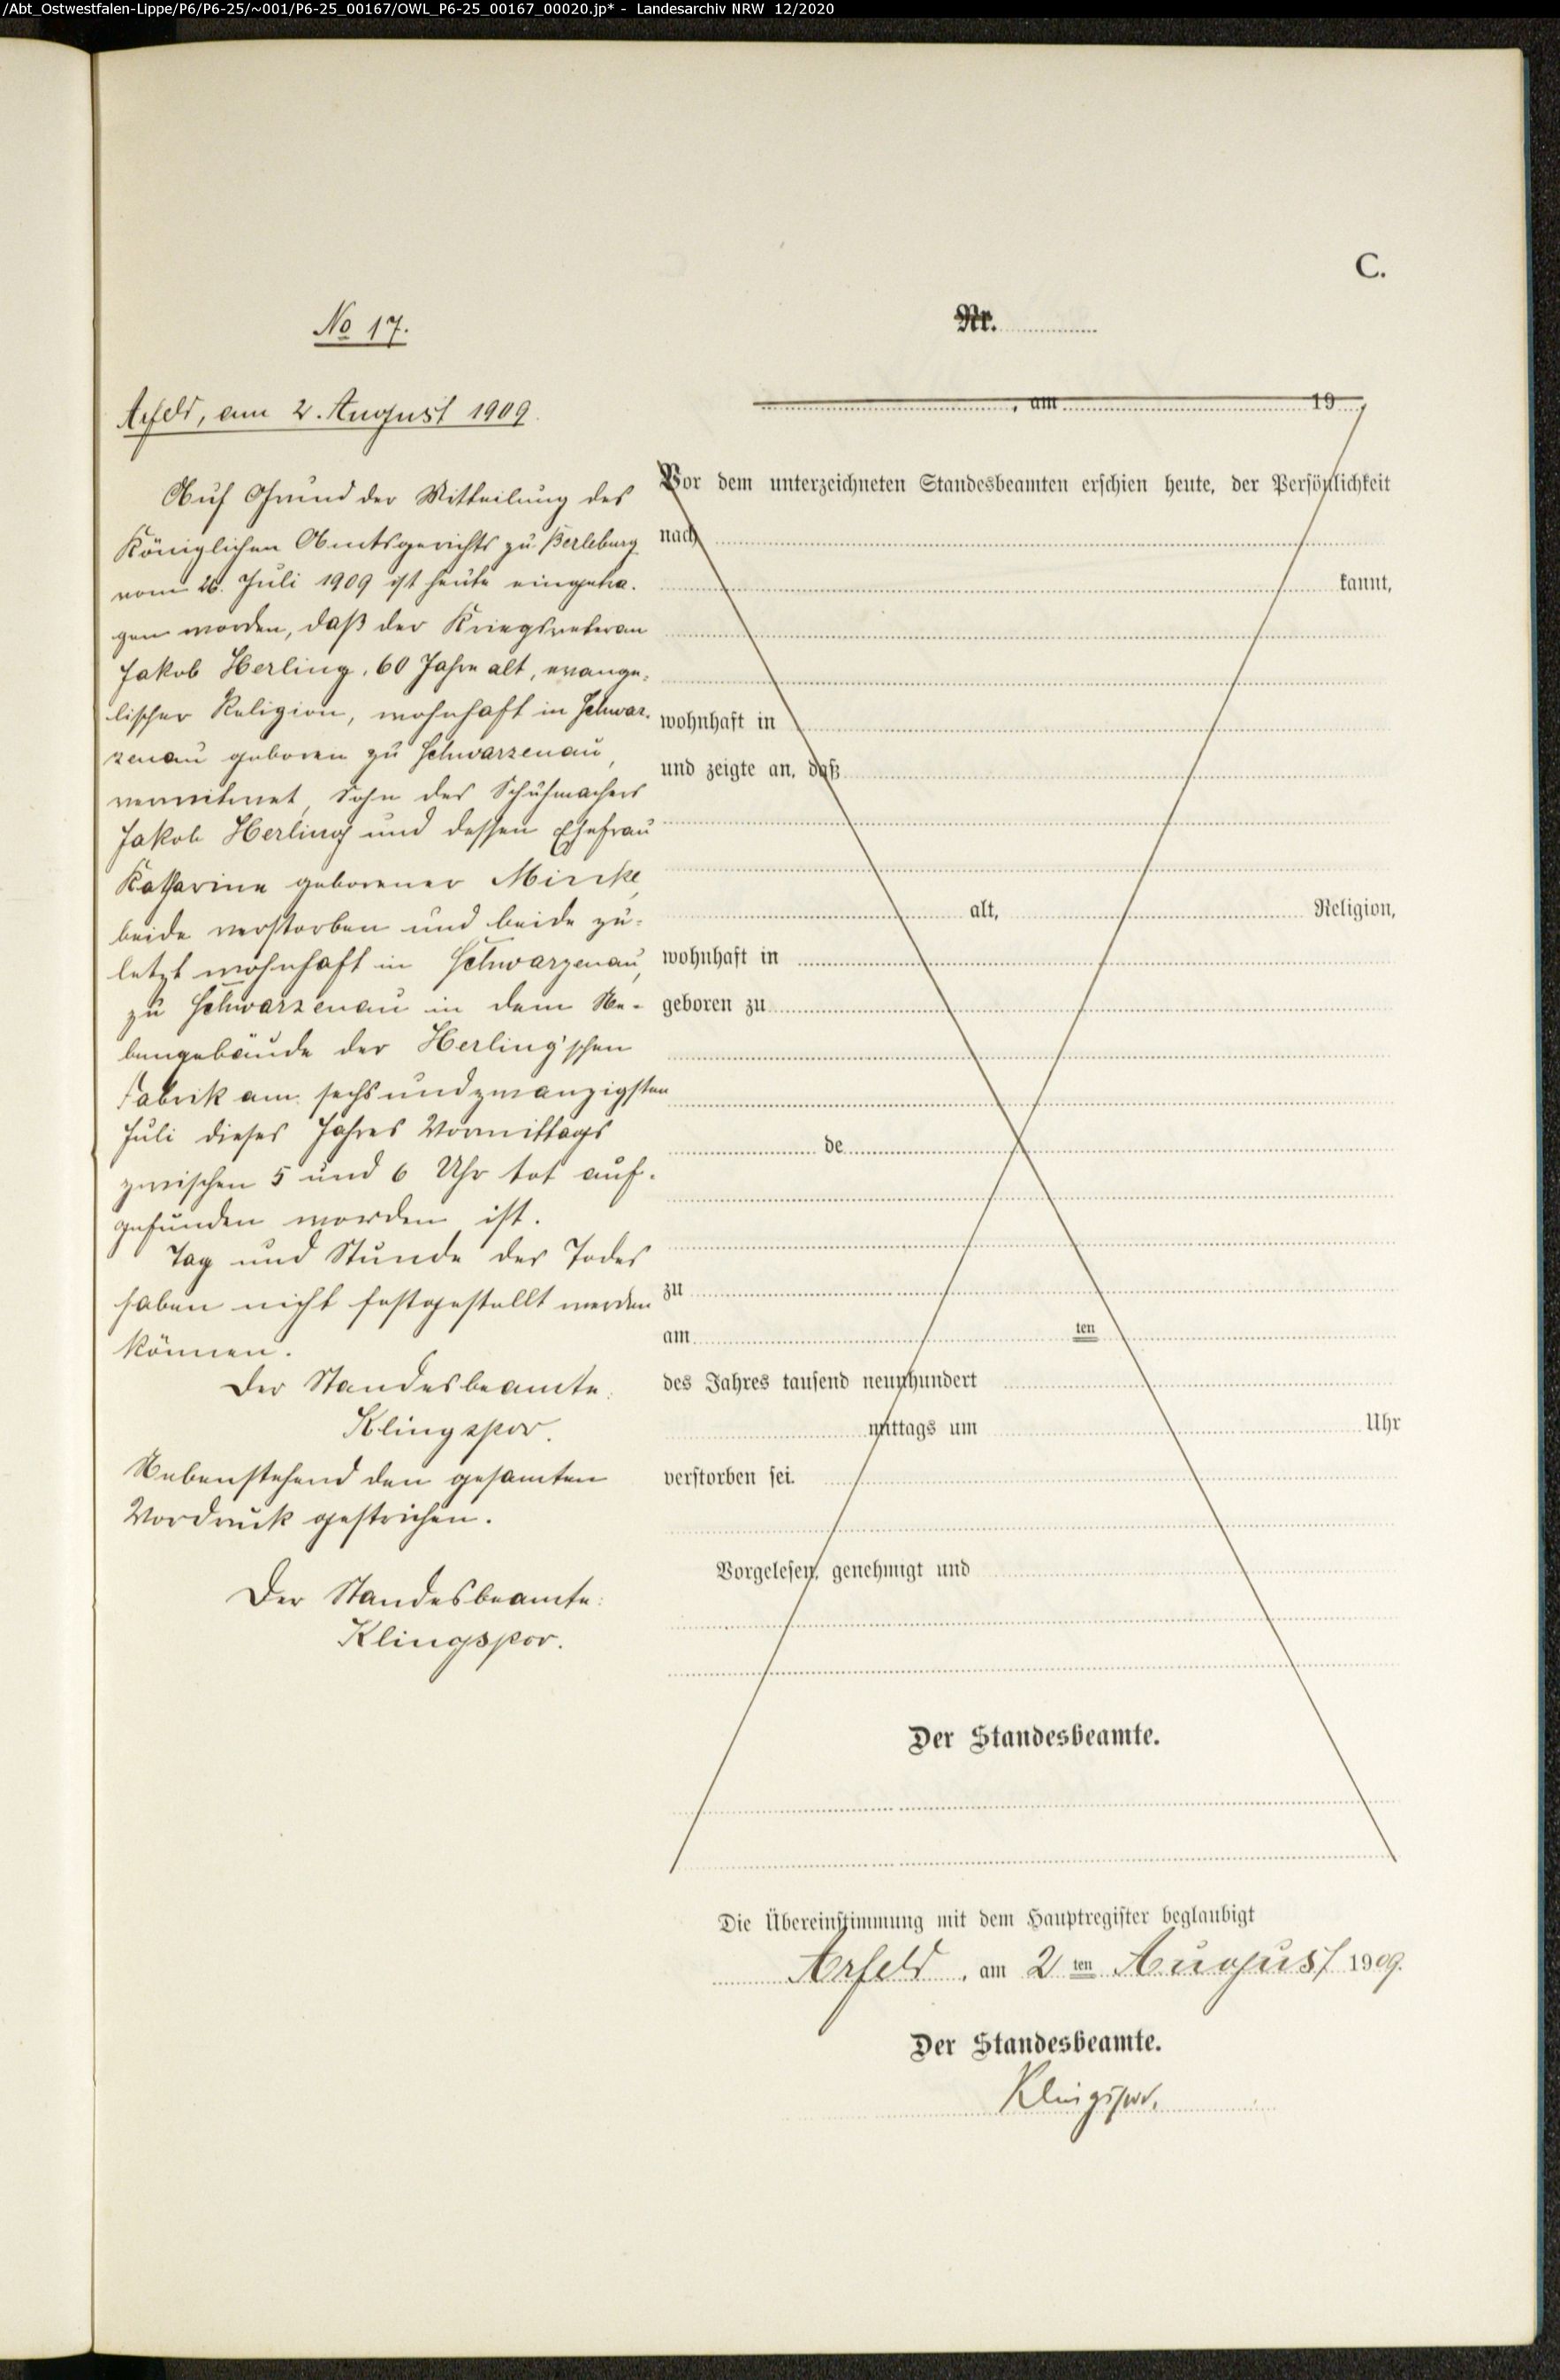 /Abt_Ostwestfalen-Lippe/P6/P6-25/~001/P6-25_00167/OWL_P6-25_00167_00020.jp* - Landesarchiv NRW 12/2020
C.
No 17.
Arfeld, am 2. August 1909.
Auf Grund der Mitteilung des
Königlichen Amtsgerichts zu Berleburg
vom 26. Juli 1909 ist heute eingetra-
gen worden, daß der Kriegsveteran
Jakob Herling, 60 Jahre alt, evange-
lischer Religion, wohnhaft in Schwar-
zenau geboren zu Schwarzenau,
verwitwet, Sohn des Schuhmachers
Jakob Herling und dessen Ehefrau
Katharine geborener
beide verstorben und beide zu-
letzt wohnhaft in Schwarzenau,
zu Schwarzenau in dem Ne-
bengebäude der Herling'schen
Fabrik am sechsundzwanzigsten
Juli dieses Jahres Vormittags
zwischen 5 und 6 Uhr tot auf-
gefunden worden ist.
Tag und Stunde des Todes
haben nicht festgestellt werden
können.
Der Standesbeamte.
Klingspor.
Nebenstehend den gesamten
Vordruck gestrichen.
Der Standesbeamte:
Klingspor.
Nr.
, am 19
Vor dem unterzeichneten Standesbeamten erschien heute, der Persönlichkeit
nach
kannt,
wohnhaft in
und zeigte an, daß
alt, Religion,
wohnhaft in
geboren zu
de
zu
am ten
des Jahres tausend neunhundert
mittags um Uhr
verstorben sei.
Vorgelesen, genehmigt und
Der Standesbeamte.
Die Übereinstimmung mit dem Hauptregister beglaubigt
Arfeld, am 2 ten August 1909.
Der Standesbeamte.
Klingspor.